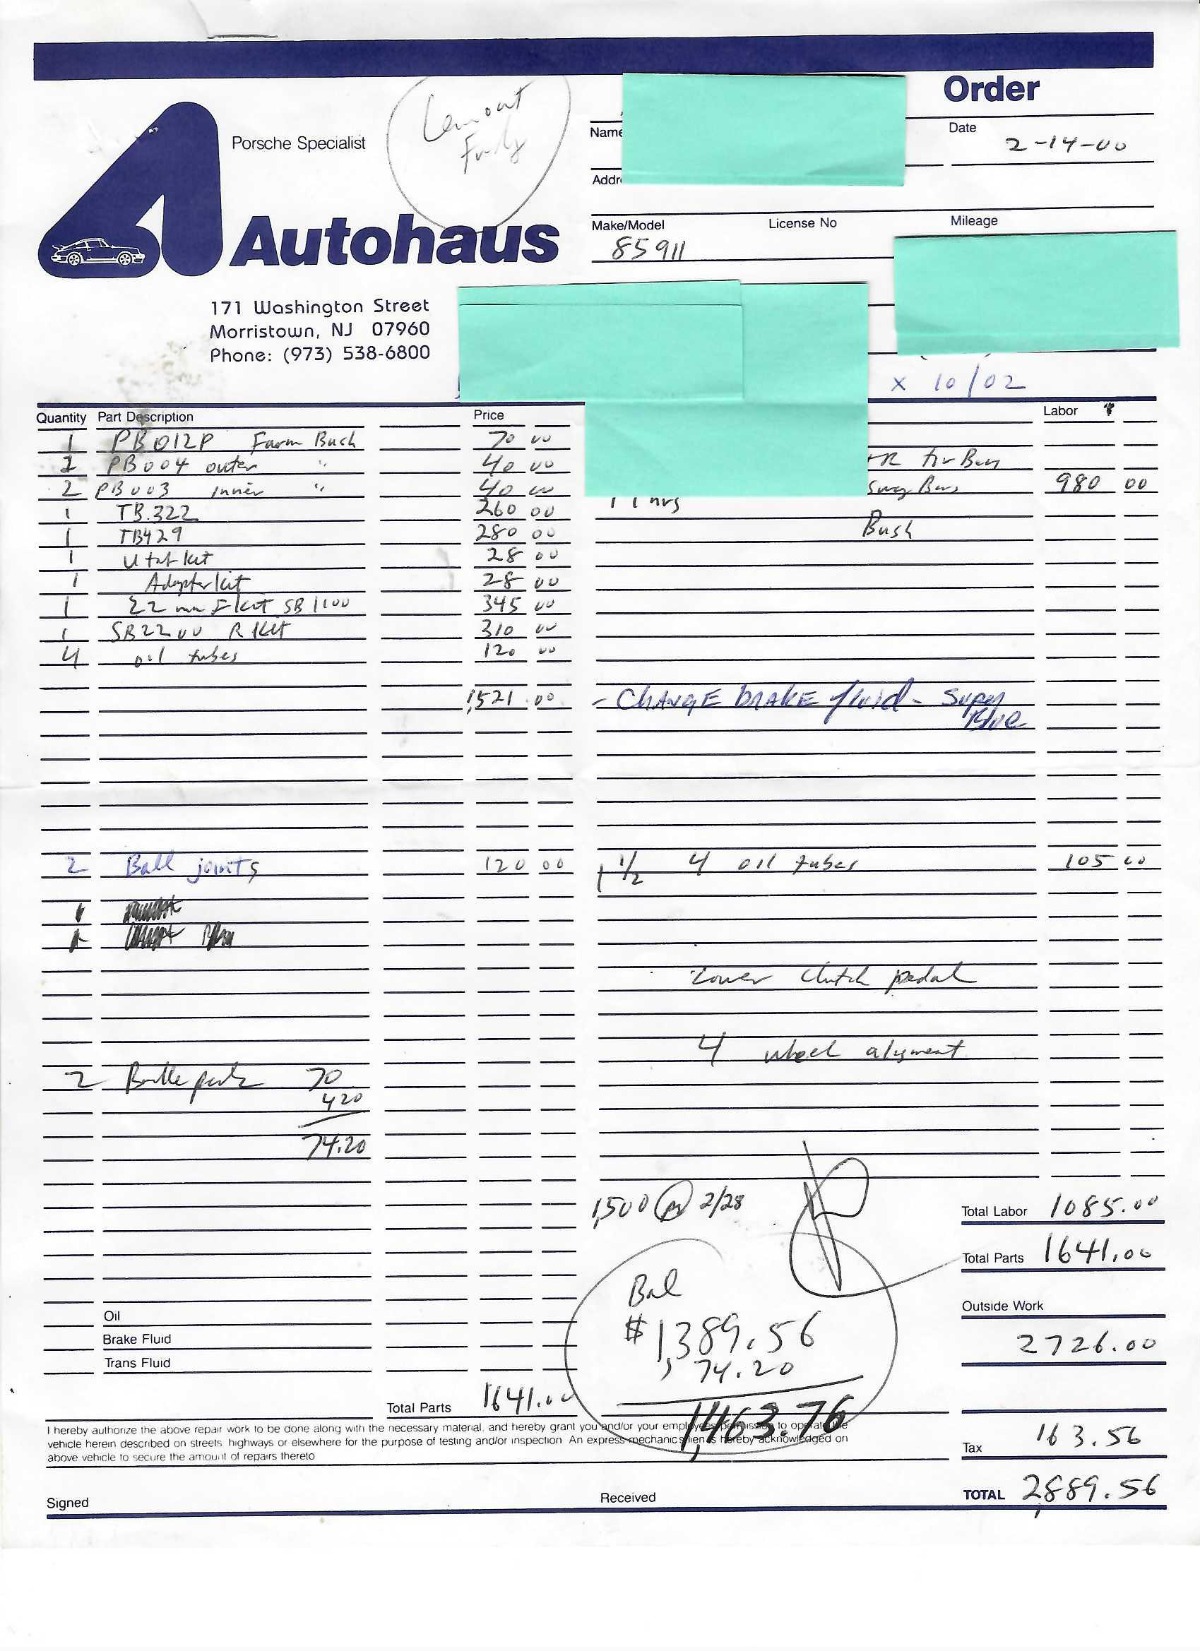 Order
Porsche Specialist
Autohaus
171 Washington Street
Morristown, NJ 07960
Phone: (973) 538-6800
Name
Date 2-14-00
Addr
Make/Model 85 911
License No
Mileage
x 10/02
Quantity Part Description Price Labor
1 PB012P Farm Bush 70 00
1 PB004 outer " 40 00
2 PB003 Inner " 40 00
1 TB.322 260 00
1 TB429 280 00
1 kit 28 00
1 Adapter kit 28 00
1 22 mm F kit SB1100 345 00
1 SB2200 R Kit 310 00
4 oil tubes 120 00
1,521.00
+R Bars
Sway Bars 980 00
11 hrs
Bush
- CHANGE BRAKE fluid - Super Blue
2 Ball joints 120 00
1 1/2 4 oil tubes 105 00
Lower Clutch pedal
4 wheel alignment
2 70
4 20
74.20
1,500 2/28
Bal
$1,389.56
74.20
1,463.76
Total Labor 1085.00
Total Parts 1641.00
Outside Work
2726.00
Oil
Brake Fluid
Trans Fluid
Total Parts 1641.00
I hereby authorize the above repair work to be done along with the necessary material, and hereby grant you and/or your employees permission to operate the
vehicle herein described on streets, highways or elsewhere for the purpose of testing and/or inspection. An express mechanics lien is hereby acknowledged on
above vehicle to secure the amount of repairs thereto
Tax 163.56
Signed
Received
TOTAL 2,889.56